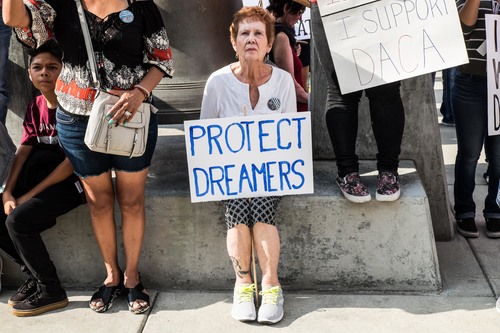 PROTECT
DREAMERS
I SUPPORT
DACA